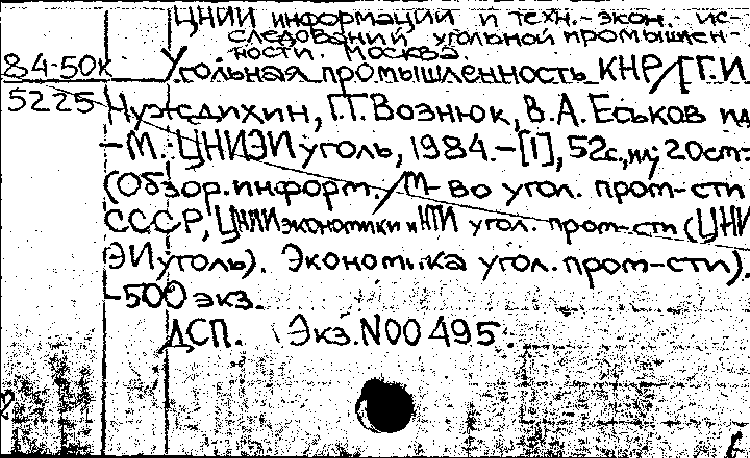 ЦНИИ информации и техн.-экон. ис-
следований угольной промышлен-
ности. Москва.
84-50к Угольная промышленность КНР/[Г.И.
5225 Нуждихин, Г.Г. Вознюк, В.А. Еськов и д
-М.: ЦНИЭИуголь, 1984.-[1], 52с., ил; 20см.
(Обзор.информ./М-во угол. пром-сти
СССР, ЦНИИ экономики и НТИ угол. пром-сти (ЦНИ
ЭИуголь). Экономика угол. пром-сти).
-500 экз.
ДСП. Экз.N00495.